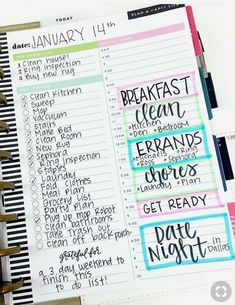 TODAY
PLAN A HAPPY LIFE
date: JANUARY 14th
Clean house!
Ring inspection
Buy new rug
Clean Kitchen
Sweep
Mop
Vacuum
Stairs
Make Bed
Clean Room
New Rug
Sephora
Ring inspection
Staples
Laundry
Fold Clothes
Meal Plan
Grocery List
Paint Plan
Plug up mop Robot
Clean bathrooms
Take trash out
Clean off back porch
grateful for
a 3 day weekend to
finish this
to do list!
BREAKFAST
clean
Kitchen
Den
Bedroom
ERRANDS
Michaels
Ring
Ross
Sephora
chores
Laundry
Plan
GET READY
Date
Night in Dallas